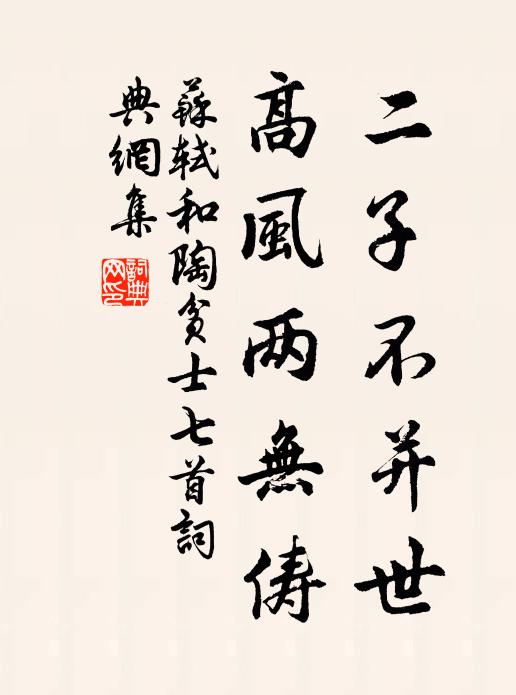 二子不并世
高風兩無儔
蘇軾和陶贫士七首詞
典網集
詞典
网印